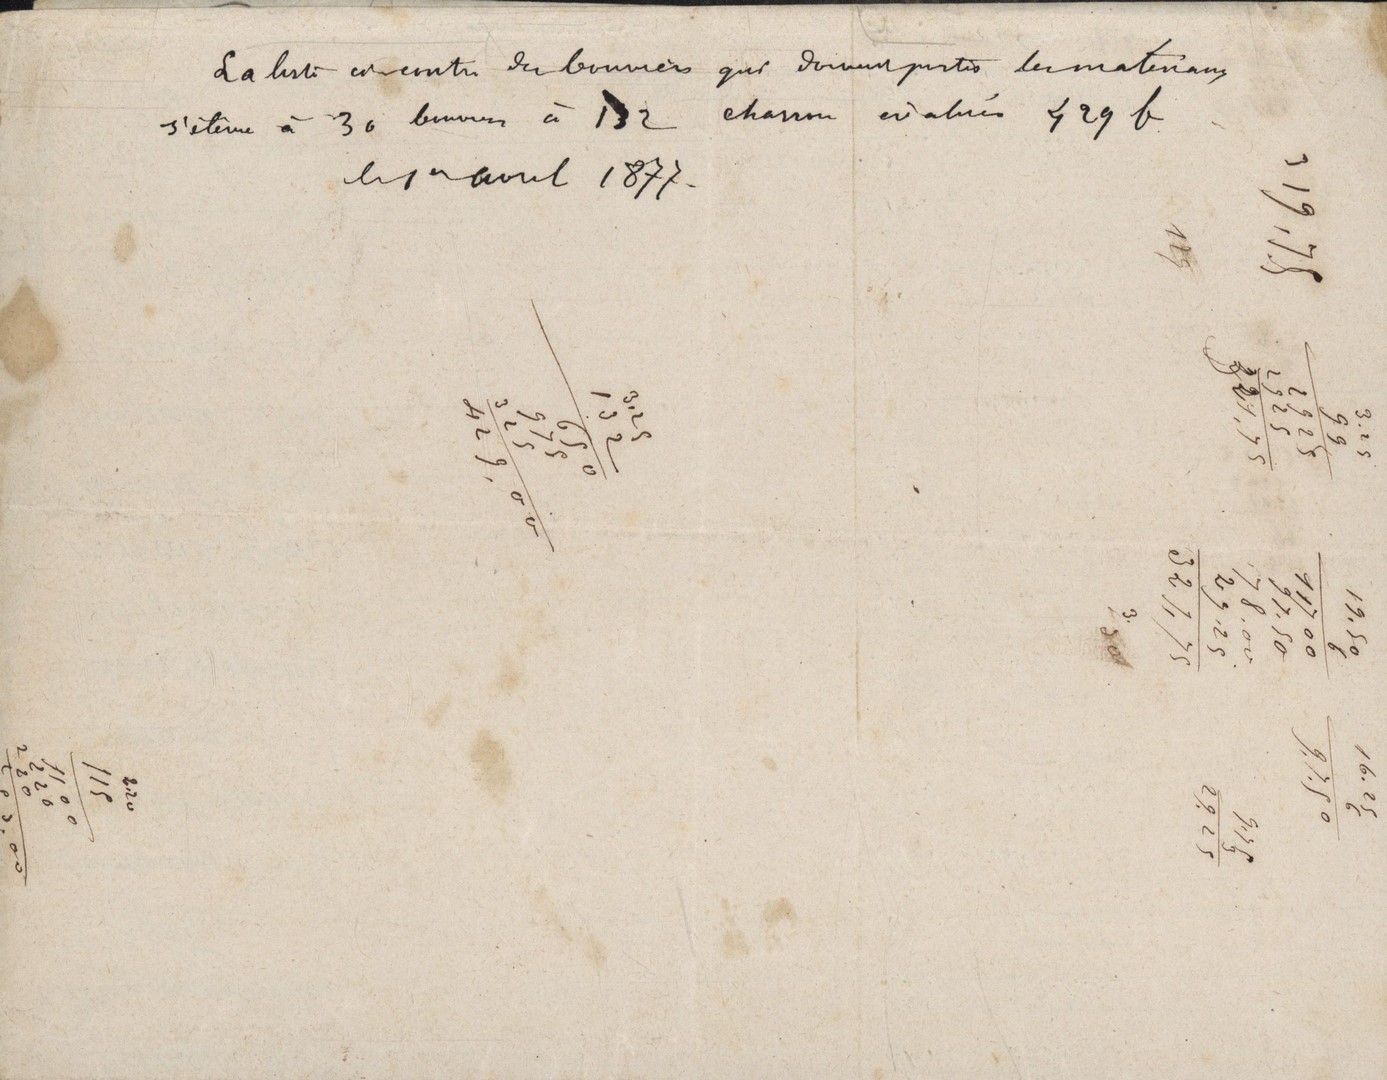 La liste ci-contre des bouviers qui doivent porter les matériaux
s'éleve à 30 bouviers à 132 charrou évalués 429 f
le 1er avril 1877.
319,75
3.25
132
650
975
325
429,00
3.25
99
2925
2925
321.75
19.50
6
11700
97.50
78.00
29.25
321,75
3.
16.25
6
97.50
9.75
3
29.25
2.20
115
1100
220
220